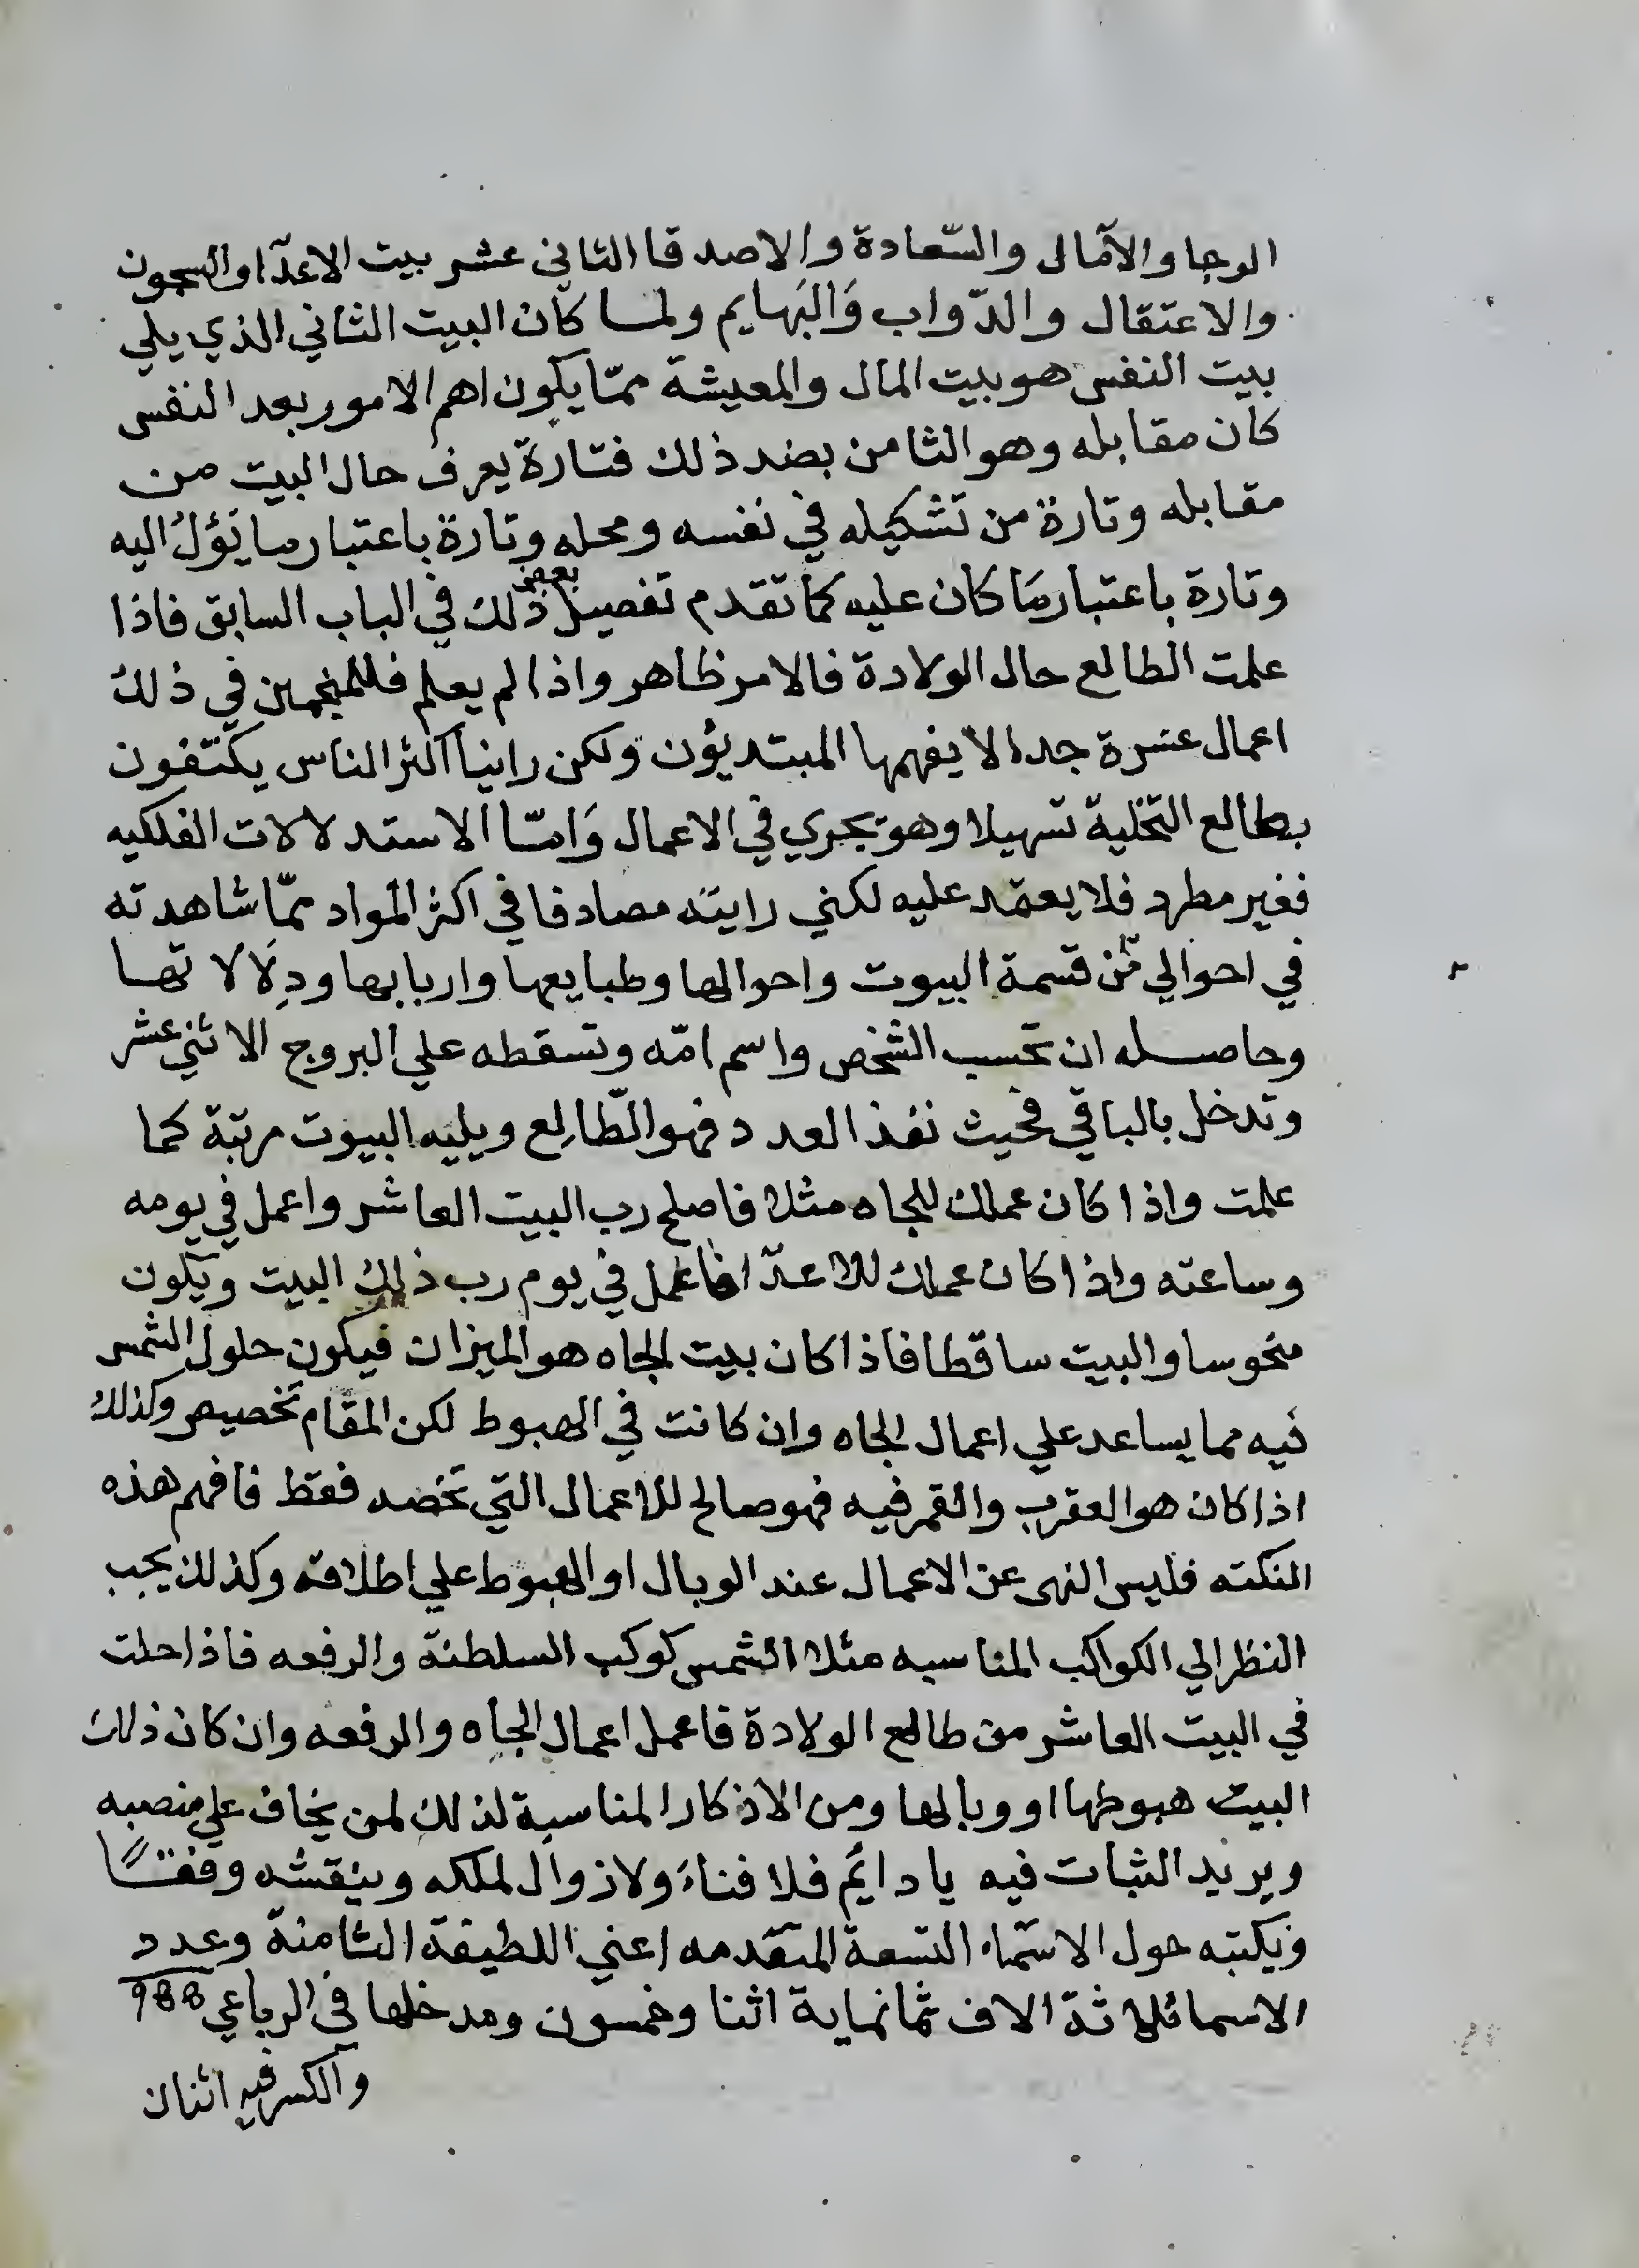 الرجا والآمال والسّعادة والاصدقا الثاني عشر بيت الاعدّاوالسجون
والاعتقال والدّواب وَالبَهايم ولما كان البيت الثاني الذي يلي
بيت النفس هو بيت المال والمعيشة ممّا يكون اهم الامور بعد النفس
كان مقابله وهو الثامن بضد ذلك فتارة يعرف حال البيت من
مقابله وتارة من تشكيله في نفسه ومحله وتارة باعتبار ما يَؤلُ اليه
وتارة باعتبار مَا كان عليه كما تقدم تفصيل بعض ذلك في الباب السابق فاذا
علمت الطالع حال الولادة فالامر ظاهر واذا لم يعلم فللمنجمين في ذلك
اعمال عسرة جدا لا يفهمها المبتديؤن ولكن راينا اكثر الناس يكتفون
بطالع التخلية تسهيلا وهو يجري في الاعمال وَامّا الاستدلالات الفلكيه
فغير مطرد فلا يعتمد عليه لكني رايته مصادفا في اكثر المواد ممّا شاهدته
في احوالي من قسمة البيوت واحوالها وطبايعها واربابها ودِلَالاتها
وحاصله ان تحسب الشخص واسم امّه وتسقطه علي البروج الاثني عشر
وتدخل بالباقي فحيث نفذ العدد فهو الطّالِع ويليه البيوت مرتبّة كما
علمت واذا كان عملك للجاه مثلا فاصلح رب البيت العاشر واعمل في يومه
وساعته واذا كان عملك للاعدّا فاعمل في يوم رب ذلك البيت ويكون
منحوسا والبيت ساقطا فاذا كان بيت الجاه هو الميزان فيكون حلول الشمس
فيه مما يساعد علي اعمال الجاه وان كانت في الهبوط لكن المقام تخصيص وكذلك
اذا كان هو العقرب والقمر فيه فهو صالح للاعمال التي تخصه فقط فافهم هذه
النكته فليس النهى عن الاعمال عند الوبال او الهبوط علي اطلاقه وكذلك يجب
النظر الي الكواكب المناسبه مثلا الشمس كوكب السلطنة والرفعه فاذا حلت
في البيت العاشر من طالع الولادة فاعمل اعمال الجاه والرفعه وان كان ذلك
البيت هبوطها او وبالها ومن الاذكار المناسبة لذلك لمن يخاف علي منصبه
ويريد الثبات فيه يا دايم فلا فناءَ ولا زوال لملكه وينقشه وفقًا
ويكتبه حول الاسمّاء التسعة المتقدمه اعني اللطيفة الثامنة وعدد
الاسما ثلاثة الاف ثمانماية اثنا وخمسون ومدخلها في الرباعي
والكسر فيه اثنان